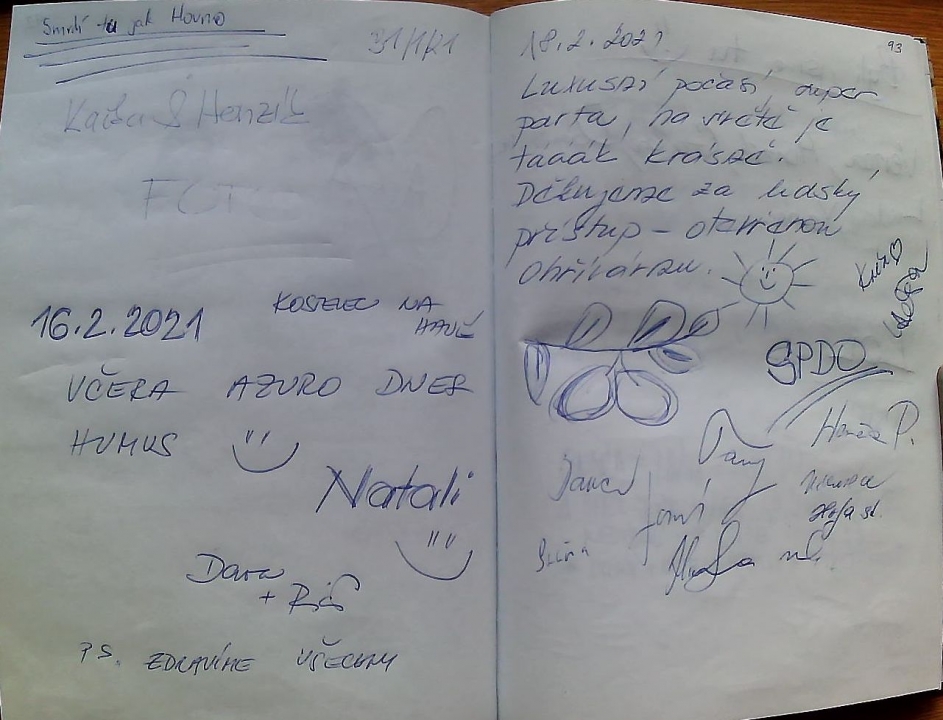 Smrdí tu jak Hovno
31/1/21
Kačka & Henzik
FOTO
16.2.2021 KOSTELEC NA
HANÉ
VČERA AZURO DNES
HUMUS
Natali
Dana
+
P.S. ZDRAVÍME VŠECHNY
93
18.2.2021
Luxusní počasí, super
parta, na vrátě je
táááák krásně.
Děkujeme za lidský
přístup – otevřenou
ohřívárnu.
SPDO
Hanča P.
Dany
Tomi
st.
ml.